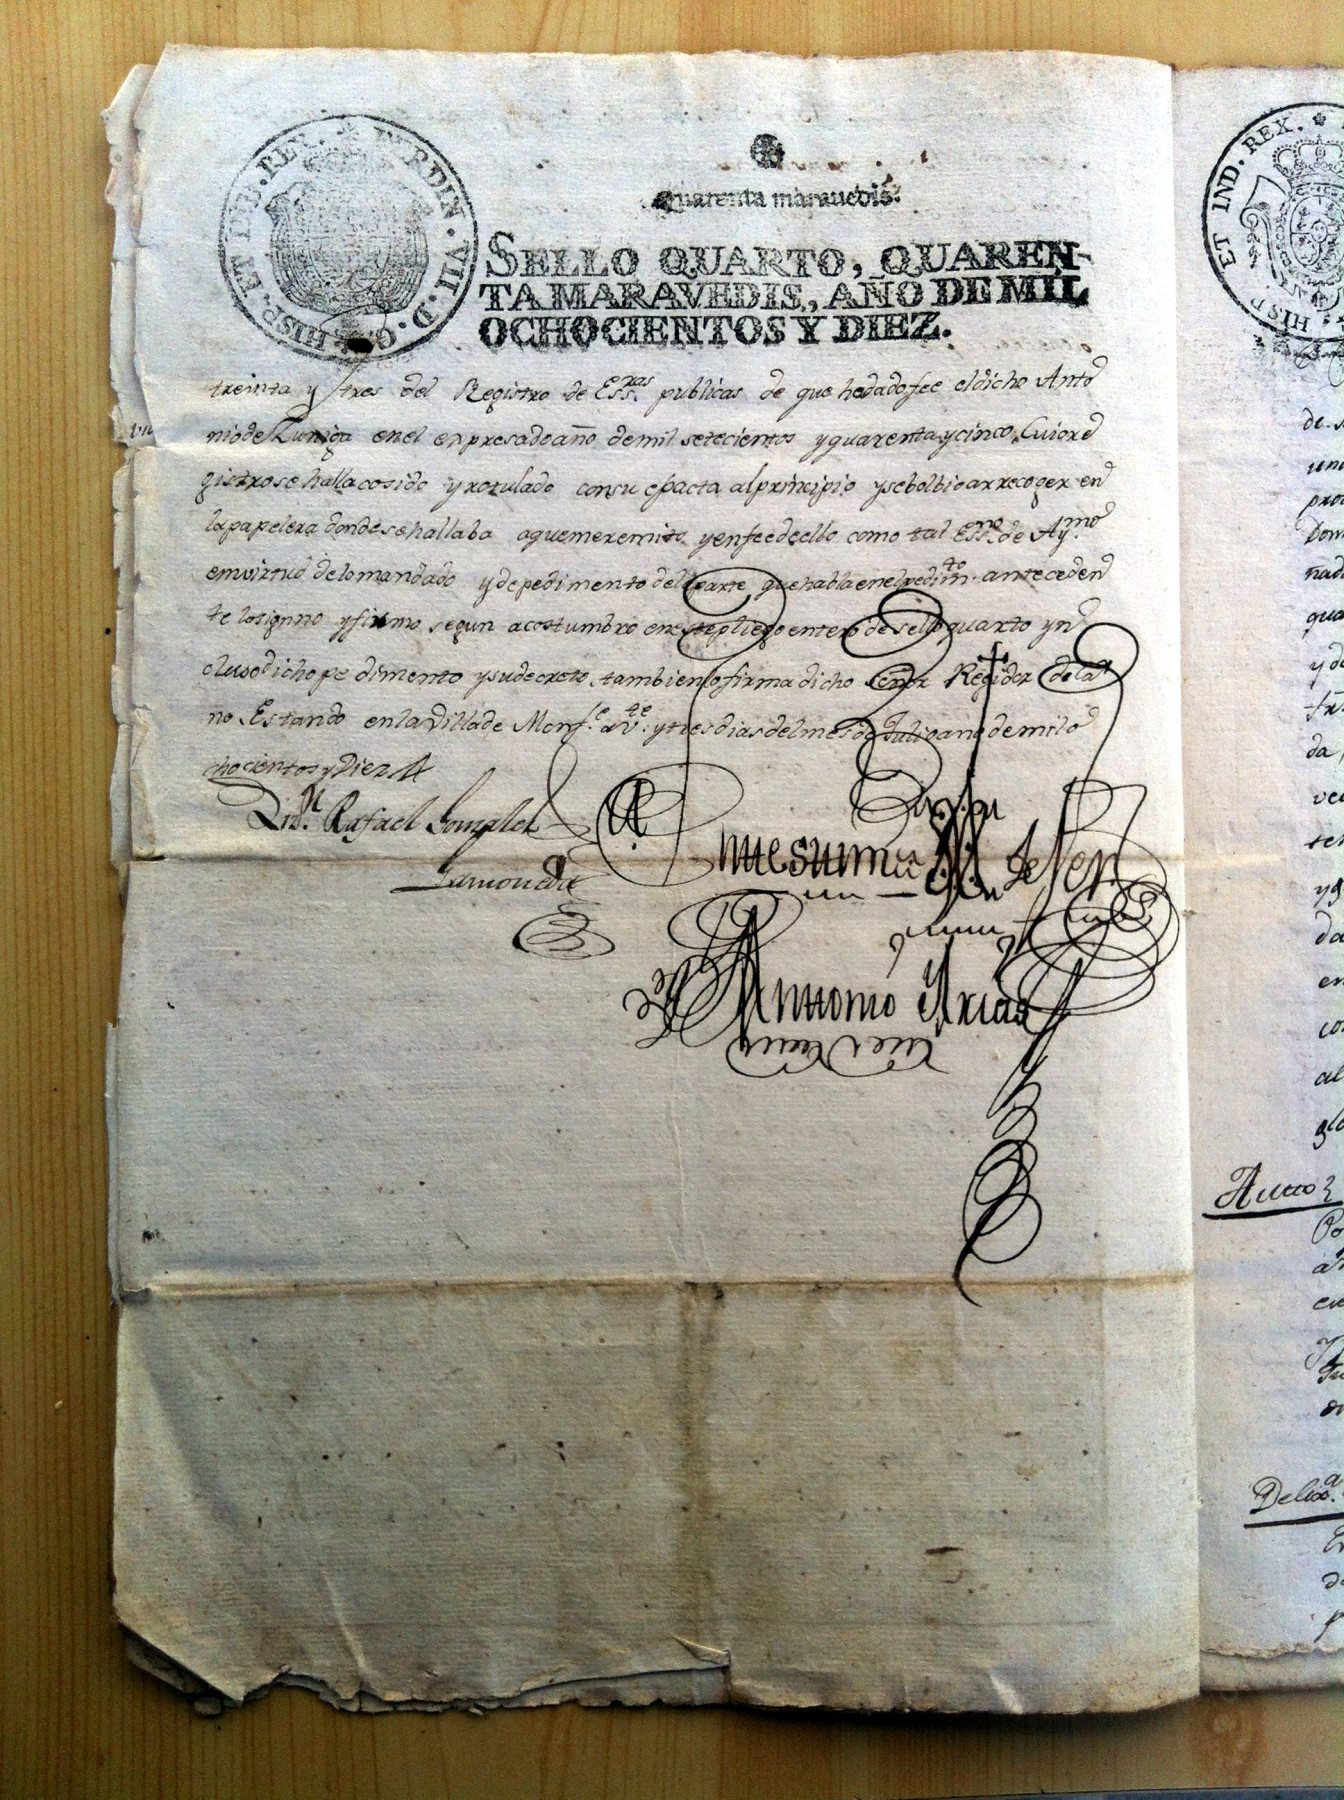 FERDIN. VII. D. G. HISP. ET IND. REX.
Quarenta maravedis.
SELLO QUARTO, QUAREN-
TA MARAVEDIS, AÑO DE MIL
OCHOCIENTOS Y DIEZ.
treinta y tres del Registro de Ess.ras publicas de que hedadofee eldicho Anto
niode Zuniga enel expresadoaño demil setecientos yquarentaycinco, Cuiore
gistrosehallacosido yrotulado consu epacta alprincipio ysebolbioarrecoger en
lapapelera dondesehallaba aquemeremito yenfeedeello como tal Ess.no de Ay.mo
envirtud delomandado ydepedimento dela parte quehablaenelpedim.to anteceden
te losigno yfirmo segun acostumbro enestepliegoentero desello quarto yn
clusodichopedimento ysudecreto, tambienlofirmadicho Señor Regidor
no Estando enlaVillade Monf.e ytresdiasdelmesdeJulioanodemilo
chocientosyDiez
Rafael Gonzalez
Antonio Arias
ET IND. REX.
HISP.
de
qua
y de
da
ve
y
da
en
co
al
Auto
Po
a
y